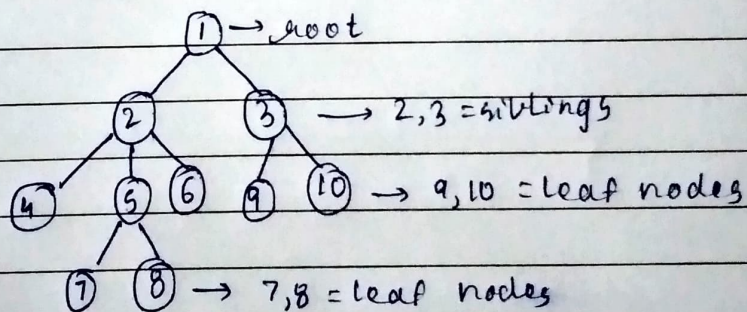 1 → root
2 3 → 2,3 = siblings
4 5 6 9 10 → 9,10 = leaf nodes
7 8 → 7,8 = leaf nodes